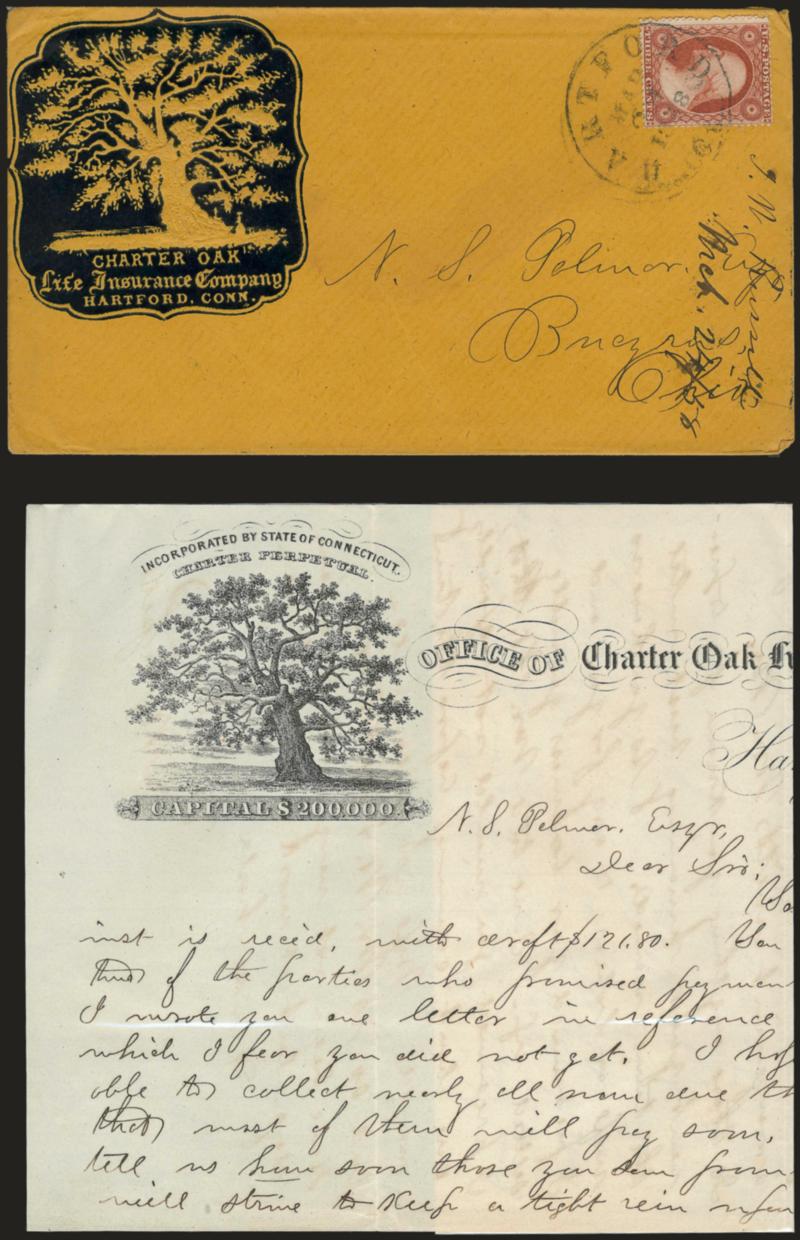 CHARTER OAK
Life Insurance Company
HARTFORD, CONN.
HARTFORD
MAR
U.S. POSTAGE
THREE CENTS
N. S. Pelmer.
Bucyrus,
Ohio
INCORPORATED BY STATE OF CONNECTICUT.
CHARTER PERPETUAL.
CAPITAL $200,000.
OFFICE OF Charter Oak
Ha
N. S. Pelmer. Esqr,
Dear Sir;
Yo
inst is rec'd, with draft $121.80. You
that of the parties who promised paymen
I wrote you one letter in reference
which I fear you did not get. I hop
able to collect nearly all now due th
that most of them will pay soon.
tell us how soon those you
will strive to keep a tight rein